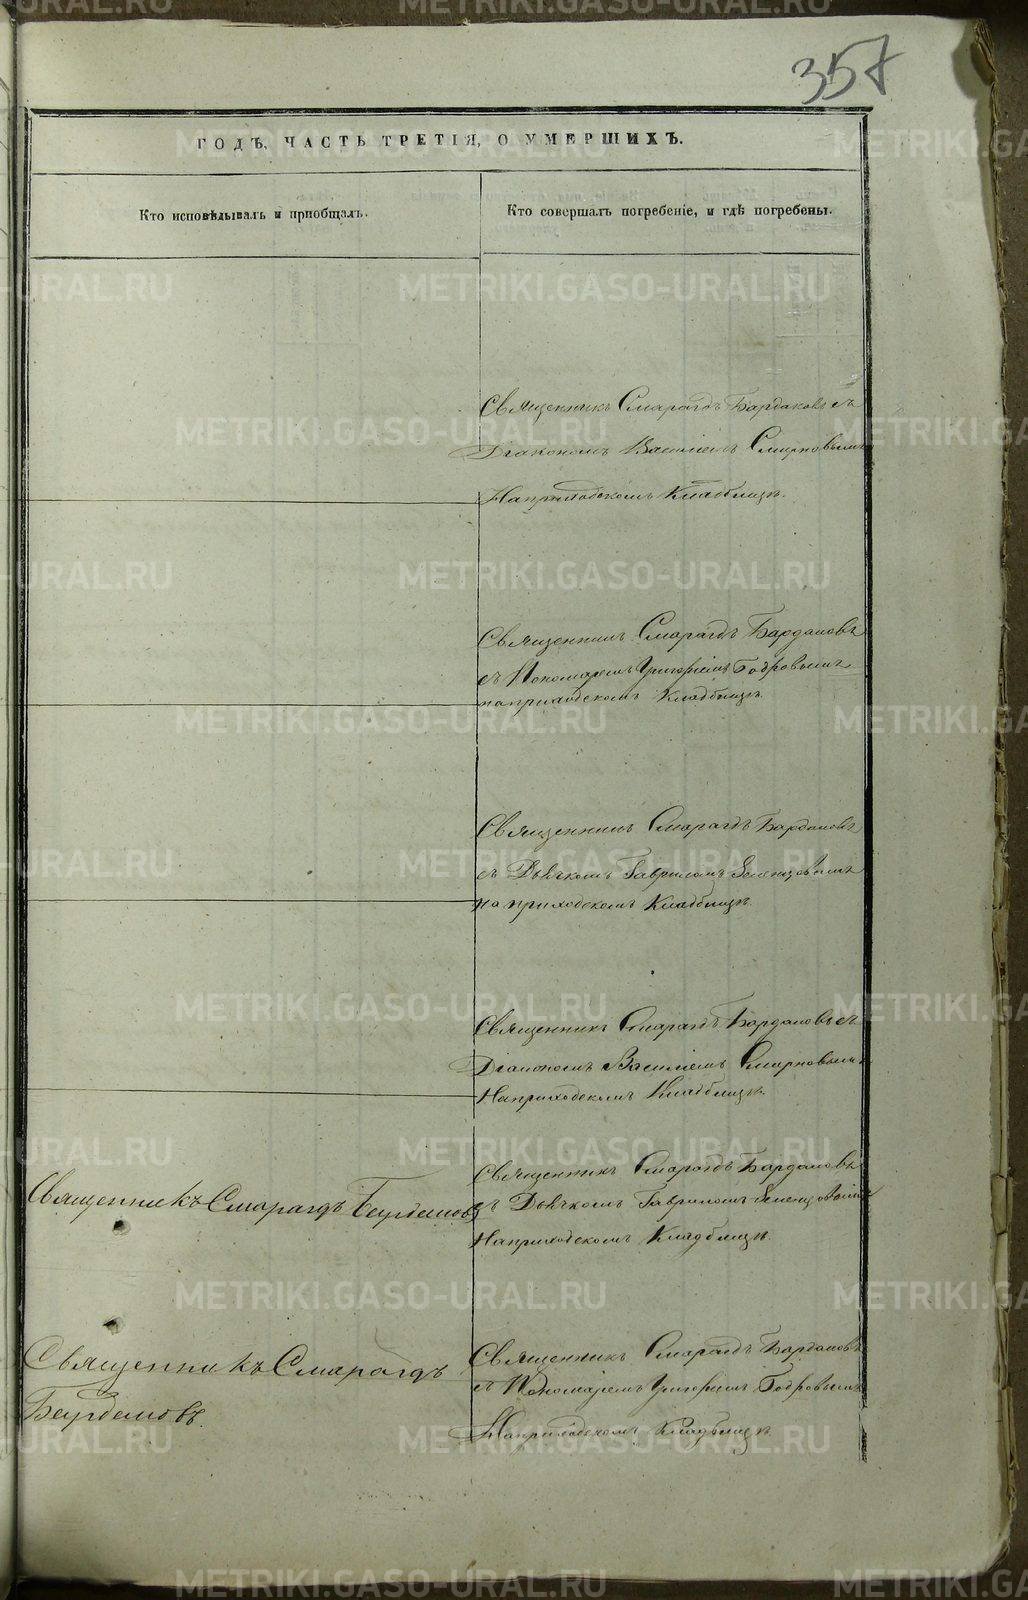 357
ГОДЪ, ЧАСТЬ ТРЕТІЯ, О УМЕРШИХЪ.
Кто исповѣдывалъ и пріобщалъ.
Кто совершалъ погребеніе, и гдѣ погребены.
Священникъ Смарагдъ Бардаковъ съ
Діакономъ Василіемъ Смирновымъ
На приходскомъ Кладбищѣ.
Священникъ Смарагдъ Бардаковъ
съ Пономаремъ Григоріемъ Бобровымъ
на приходскомъ Кладбищѣ.
Священникъ Смарагдъ Бардаковъ
съ Дьячкомъ Гавриломъ
на приходскомъ Кладбищѣ.
Священникъ Смарагдъ Бардаковъ съ
Діакономъ Василіемъ Смирновымъ
На приходскомъ Кладбищѣ.
Священникъ Смарагдъ Бардаковъ
Священникъ Смарагдъ Бардаковъ
съ Дьячкомъ Гавриломъ
На приходскомъ Кладбищѣ.
Священникъ Смарагдъ
Бардаковъ.
Священникъ Смарагдъ Бардаковъ
съ Пономаремъ Григоріемъ Бобровымъ
На приходскомъ Кладбищѣ.
METRIKI.GASO-URAL.RU